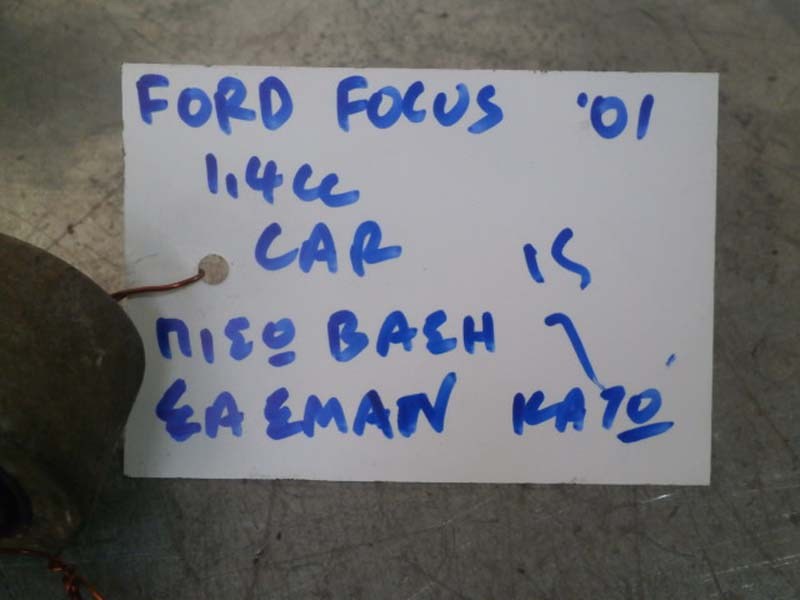 FORD FOCUS '01
1,4cc
CAR
ΠΙΣΩ ΒΑΣΗ
ΣΑΣΜΑΝ ΚΑΤΩ